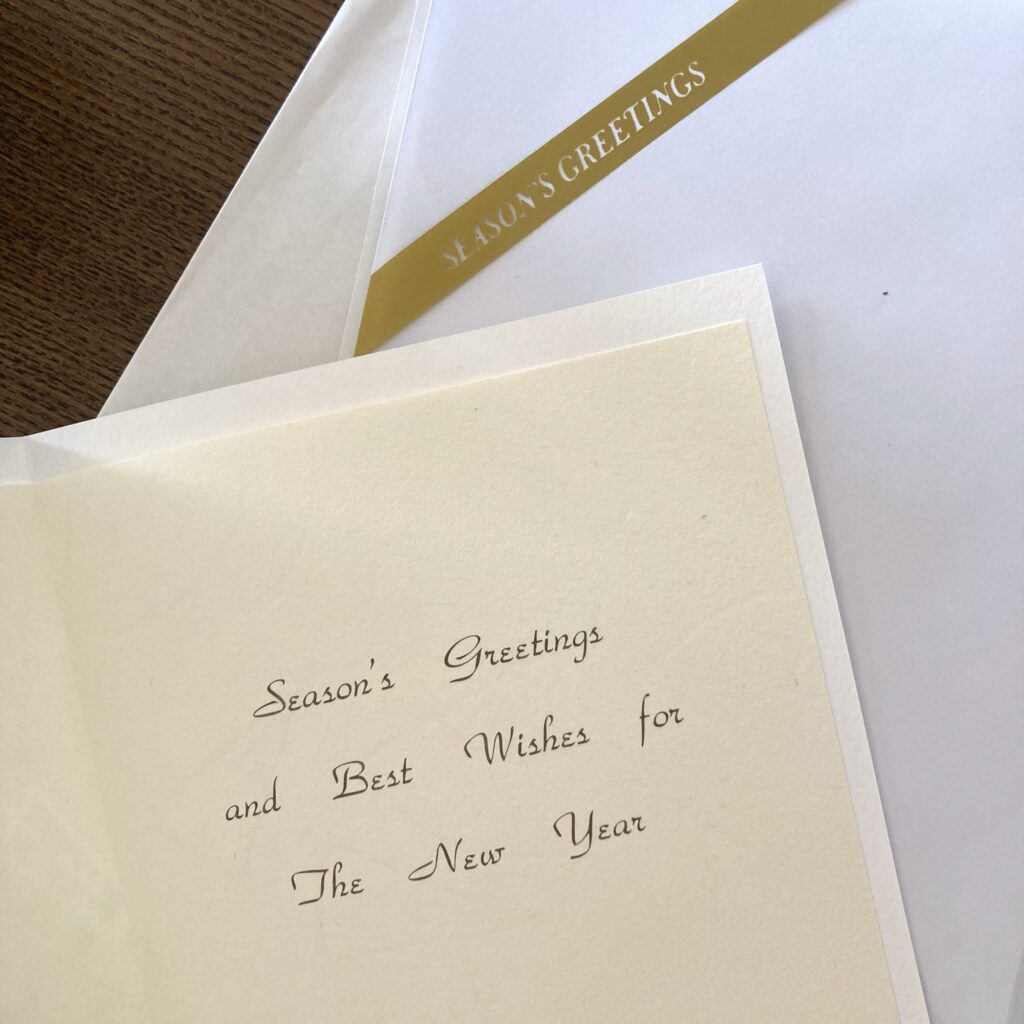 SEASON'S GREETINGS
Season's Greetings
and Best Wishes for
The New Year